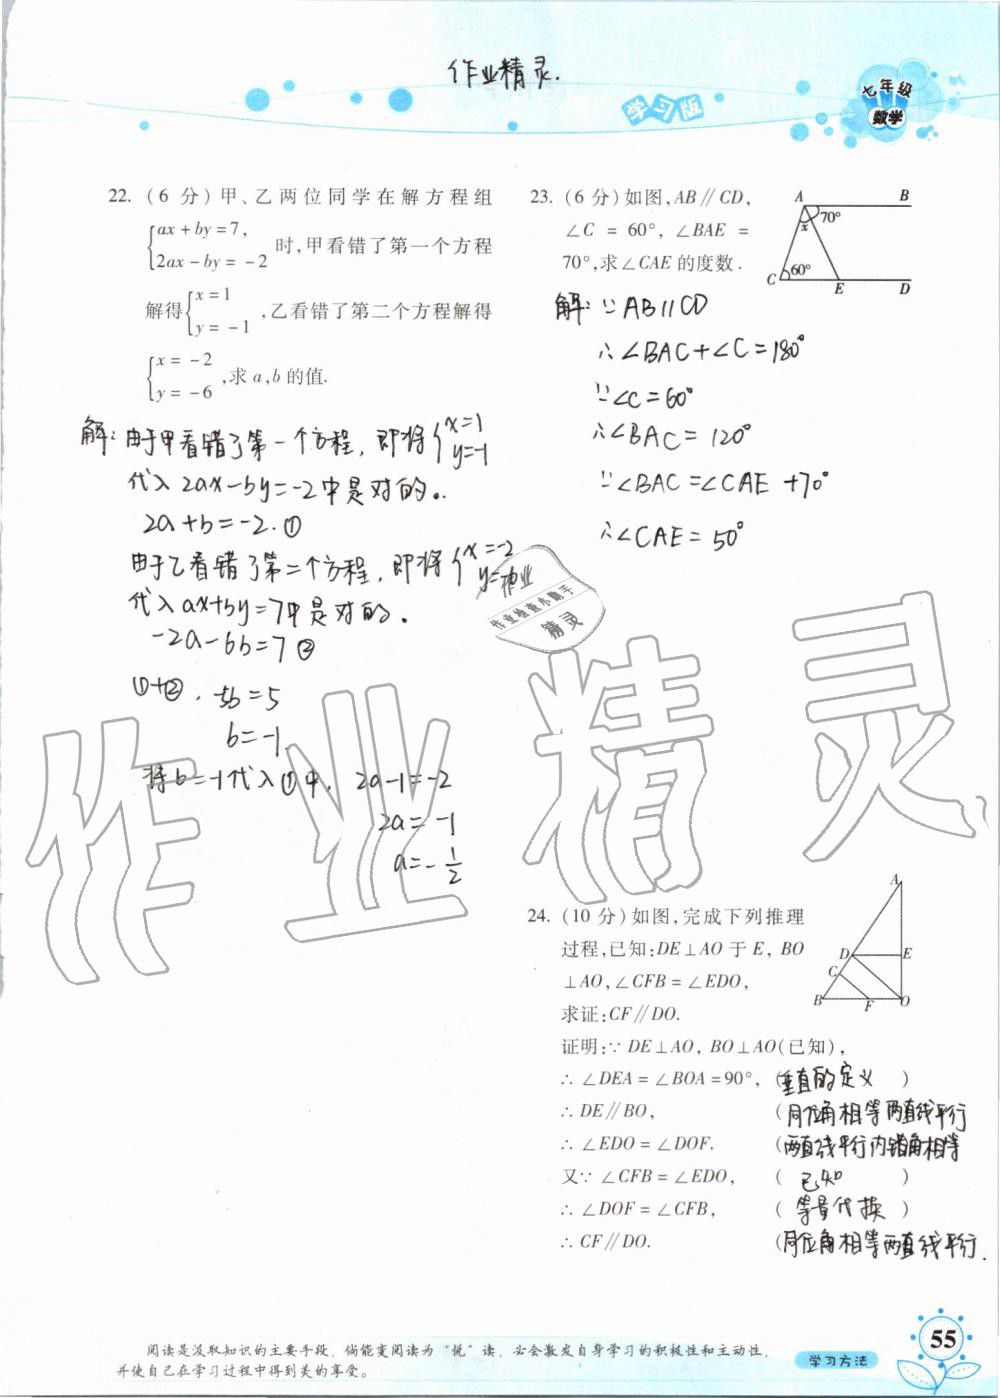 作业精灵.
学习版
七年级
数学
22. (6 分) 甲、乙两位同学在解方程组
{ax + by = 7,
2ax - by = -2 时,甲看错了第一个方程
解得{x = 1
y = -1 ,乙看错了第二个方程解得
{x = -2
y = -6 ,求 a,b 的值.
解: 由于甲看错了第一个方程, 即将{x=1
y=-1
代入 2ax-by=-2中是对的.
2a+b=-2.①
由于乙看错了第二个方程, 即将{x=-2
y=-6
代入 ax+by=7中是对的.
-2a-6b=7②
①+②, -5b=5
b=-1.
将b=-1代入①中, 2a-1=-2
2a=-1
a=-1/2
23. (6 分) 如图,AB∥CD,
∠C = 60°, ∠BAE =
70°,求∠CAE 的度数.
A B
70°
x
60°
C E D
解: ∵AB∥CD
∴∠BAC+∠C=180°
∵∠C=60°
∴∠BAC=120°
∵∠BAC=∠CAE+70°
∴∠CAE=50°
作业
作业检查小助手
精灵
作业精灵
24. (10 分) 如图,完成下列推理
过程,已知:DE⊥AO 于 E, BO
⊥AO,∠CFB = ∠EDO,
求证:CF∥DO.
A
D E
C
B F O
证明:∵ DE⊥AO, BO⊥AO(已知),
∴ ∠DEA = ∠BOA = 90°, (垂直的定义 )
∴ DE∥BO, (同位角相等两直线平行
∴ ∠EDO = ∠DOF. (两直线平行内错角相等
又∵ ∠CFB = ∠EDO, ( 已知 )
∴ ∠DOF = ∠CFB, ( 等量代换 )
∴ CF∥DO. (同位角相等两直线平行.
阅读是汲取知识的主要手段, 倘能变阅读为“悦”读, 必会激发自身学习的积极性和主动性,
并使自己在学习过程中得到美的享受。
学习方法
55